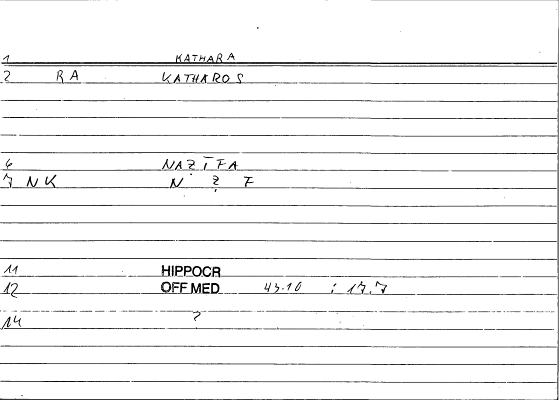 1 KATHARA
2 RA KATHAROS
6 NAẒĪFA
7 NK N Ẓ F
11 HIPPOCR
12 OFF MED 43.10 : 17.7
14 ?